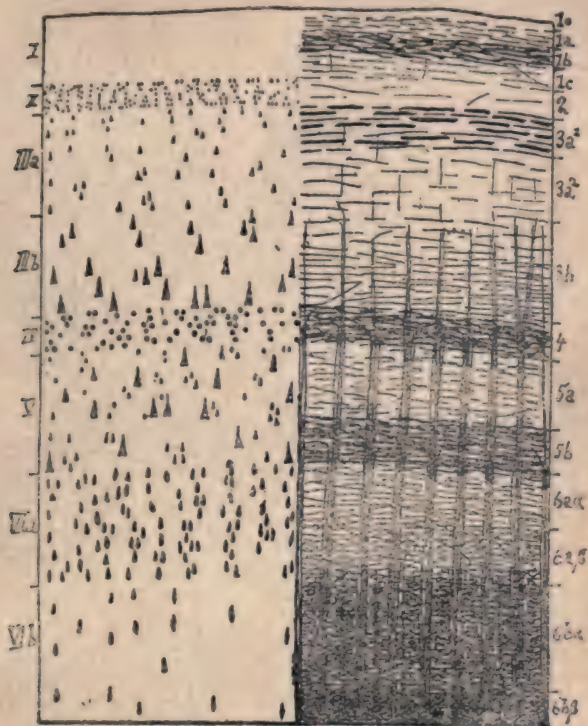 I
II
IIIa
IIIb
IV
V
VIa
VIb
1o
1a
1b
1c
2
3a¹
3a²
3b
4
5a
5b
6aα
6aβ
6bα
6bβ